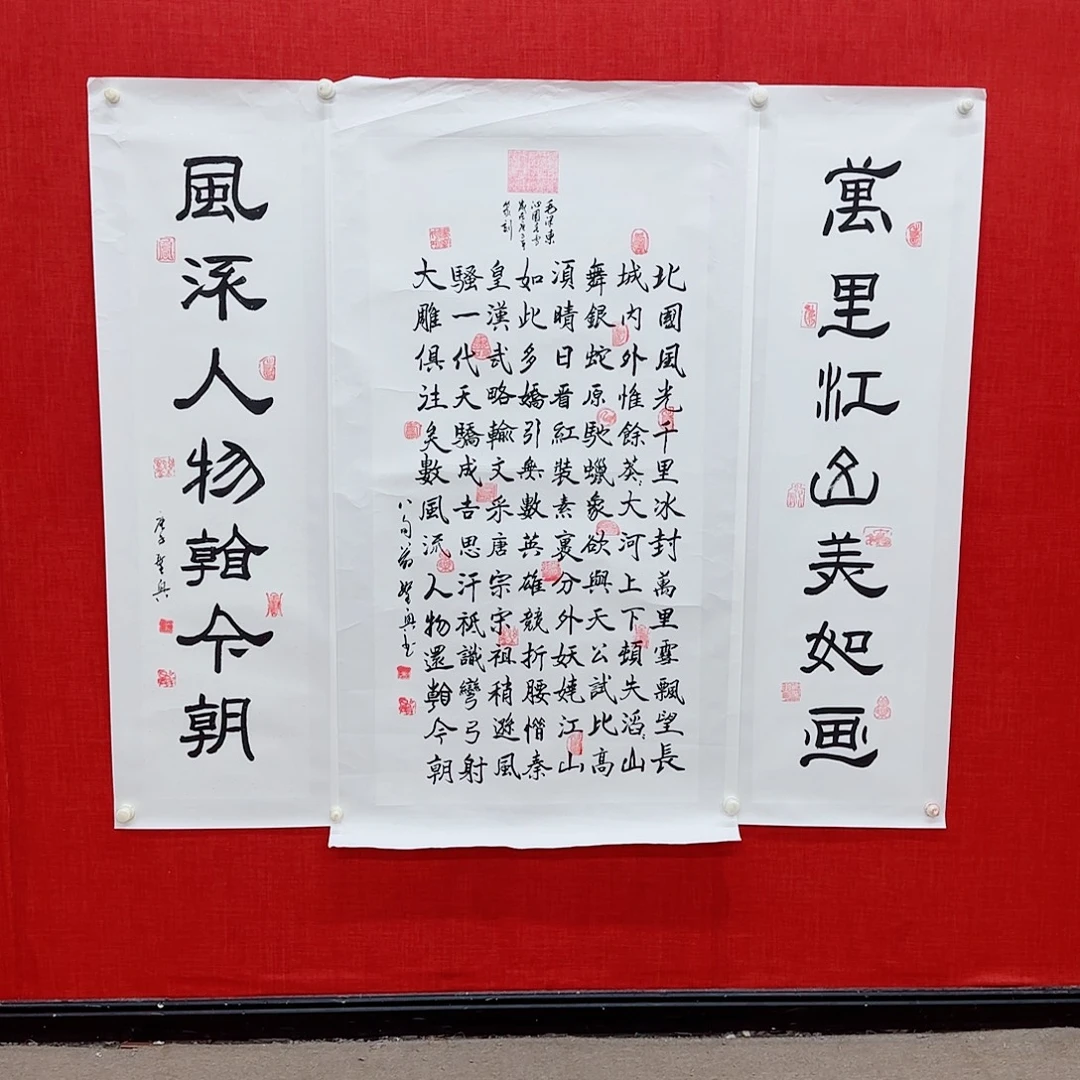 萬里江山美如画
毛泽东
沁園春雪
篆刻
北國風光千里冰封萬里雪飄望長
城内外惟餘莽:大河上下頓失滔:山
舞銀蛇原馳蠟象欲與天公試比高
須晴日看紅裝素裹分外妖嬈江山
如此多嬌引無數英雄競折腰惜秦
皇漢武略輸文采唐宗宋祖稍遜風
騷一代天驕成吉思汗祇識彎弓射
大雕俱往矣數風流人物還看今朝
八旬翁聖興書
風流人物看今朝
庚子聖興